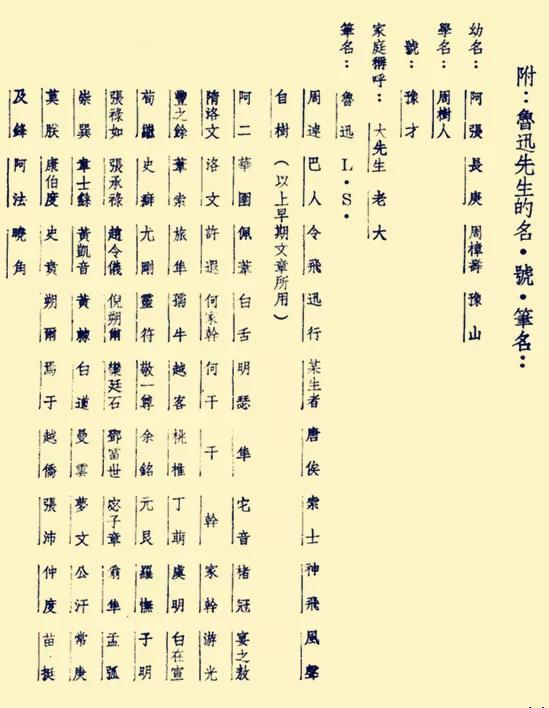 附：魯迅先生的名·號·筆名：
幼名：阿張 長庚 周樟壽 豫山
學名：周樹人
號：豫才
家庭稱呼：大先生 老大
筆名：魯迅 L·S·
周逴 巴人 令飛 迅行 某生者 唐俟 索士 神飛 風聲
自樹（以上早期文章所用）
阿二 華圉 佩葦 白舌 明瑟 隼 宅音 楮冠 宴之敖
隋洛文 洛文 許遐 何家幹 何干 干 幹 家幹 游光
豐之餘 葦索 旅隼 孺牛 越客 桃椎 丁萌 虞明 白在宣
荀繼 史癖 尤剛 靈符 敬一尊 余銘 元艮 羅憮 子明
張祿如 張承祿 趙令儀 倪朔爾 欒廷石 鄧當世 宓子章 翁隼 孟弧
崇巽 韋士繇 黃凱音 黃棘 白道 曼雲 夢文 公汗 常庚
莫朕 康伯度 史賁 朔爾 焉于 越僑 張沛 仲度 苗·挺
及鋒 阿法 曉角